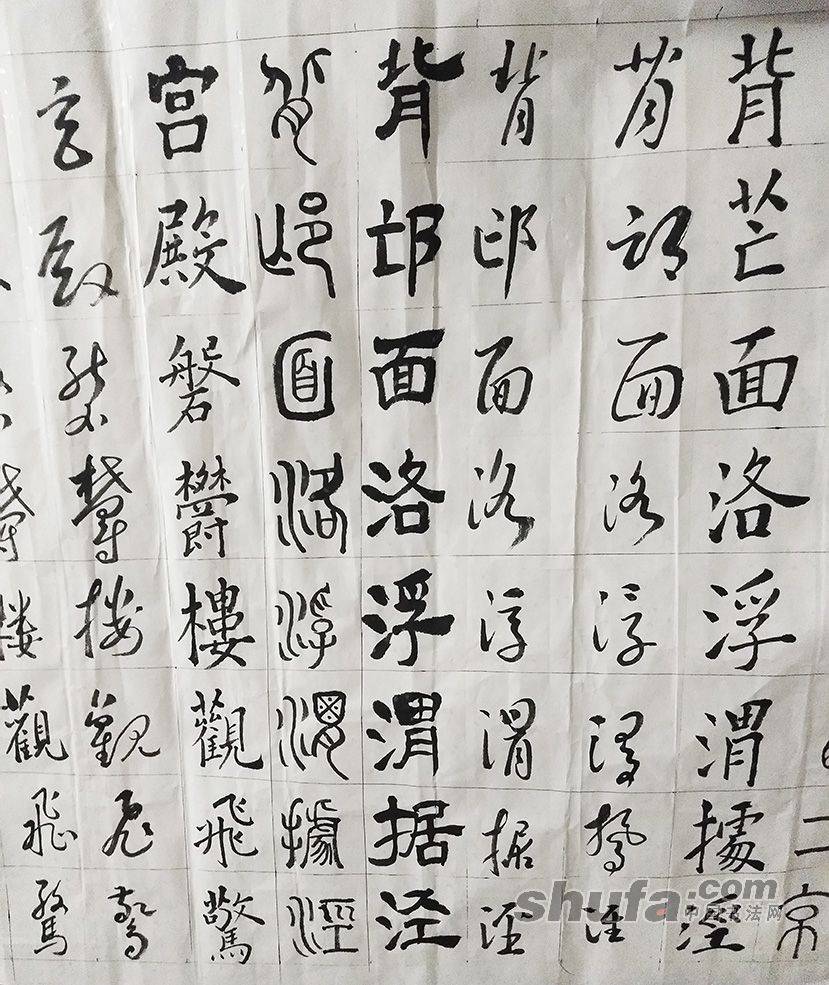 二京
背芒面洛浮渭據涇
背邙面洛浮渭據涇
背邙面洛浮渭据泾
背邙面洛浮渭据泾
背邙面洛浮渭據涇
宫殿磐欝樓觀飛驚
宫殿盤欝樓觀飛驚
欝樓觀飛驚
shufa.com
中国书法网